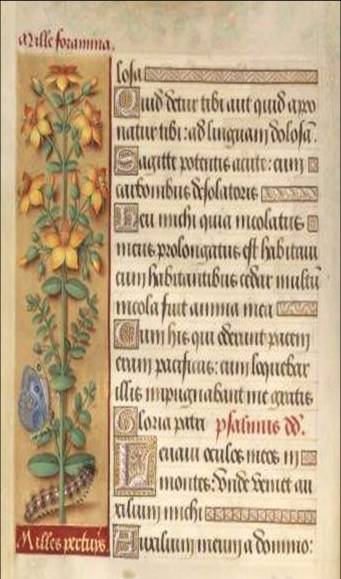 Mille foramina.
losa
Quid detur tibi aut quid apo
natur tibi: ad linguam dolosā.
Sagitte potentis acute: cum
carbonibus desolatoriis
Heu michi quia incolatus
meus prolongatus est habitaui
cum habitantibus cedar multū
incola fuit anima mea
Cum his qui oderunt pacem
eram pacificus: cum loquebar
illis impugnabant me gratis
Gloria patri psalmus dd.
Leuaui oculos meos in
montes: vnde veniet au
xilium michi
Auxilium meum a domino:
Milles pertuys.